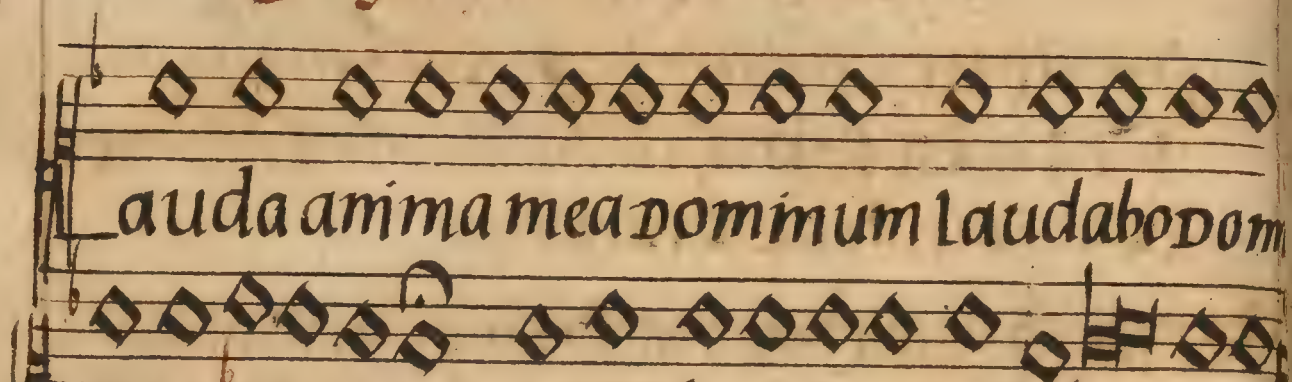 Lauda anima mea Dominum Laudabo Dom